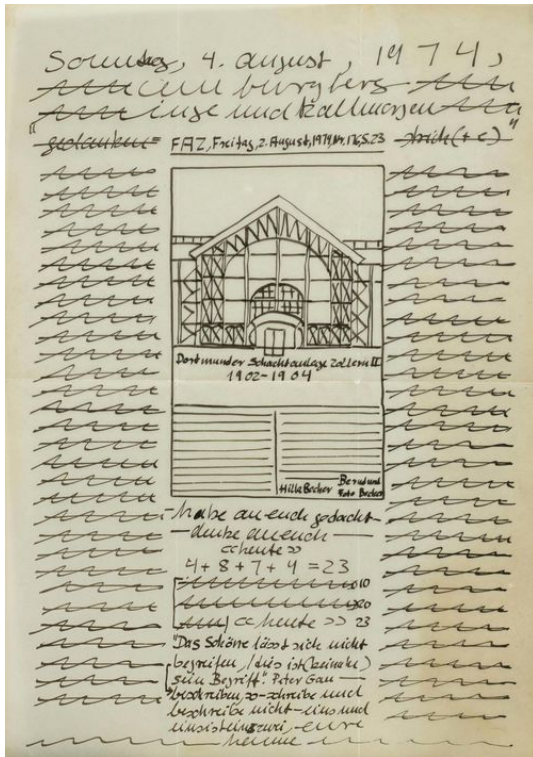 Sonntag, 4. august, 1974,
am burgberg
inge und
"gedanken=
strich(+e)"
FAZ, Freitag, 2. August, 1974, Nr. 176, S. 23
Dortmunder Schachtanlage Zollern II
1902-1904
Hilla Becher
Bernd und
Foto Becher
- habe an euch gedacht -
- denke an euch -
<<heute>>
4+8+7+4=23
10
20
<<heute>> 23
"Das Schöne lässt sich nicht
begreifen, (dies ist (beinahe)
sein Begriff". Peter Gan -
beschreiben >- schreibe und
beschreibe nicht - eins und
eins ist eins zwei, - eure
hanne